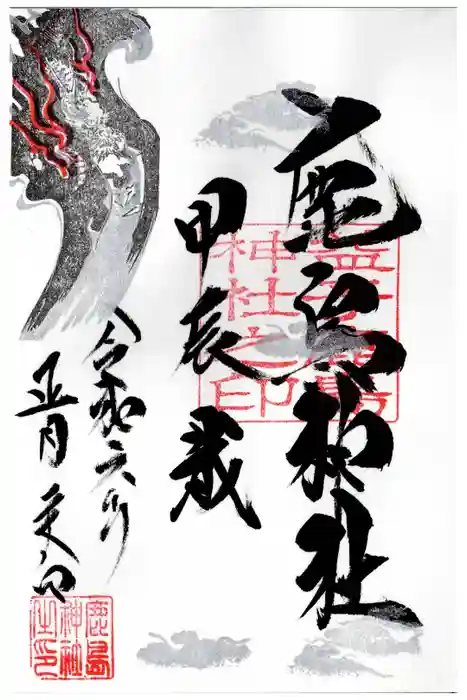 鹿島神社
甲辰歳
令和六年
正月
神社之印
鹿島
神社
之印